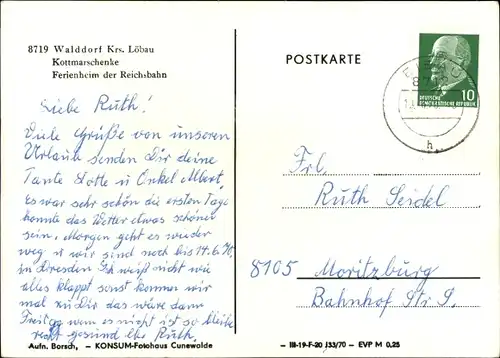 8719 Walddorf Krs. Löbau
Kottmarschenke
Ferienheim der Reichsbahn
Liebe Ruth!
Viele Grüße von unseren
Urlaub senden Dir deine
Tante Lotte u Onkel Albert.
Es war sehr schön die ersten Tage
konnte das Wetter etwas schöner
sein. Morgen geht es wieder
weg u wir sind noch bis 14.6.70
in Dresden Ich weiß nicht wie
alles klappt sonst kommen wir
mal zu Dir das wäre dann
Freitag wenn es nicht ist so bleibe
recht gesund Ruth
Aufn. Borsch, — KONSUM-Fotohaus Cunewalde
POSTKARTE
DEUTSCHE
DEMOKRATISCHE REPUBLIK
10
h
Frl.
Ruth Seidel
8105 Moritzburg
Bahnhof Str 9.
III-19-F-20 /33/70 — EVP M 0,25